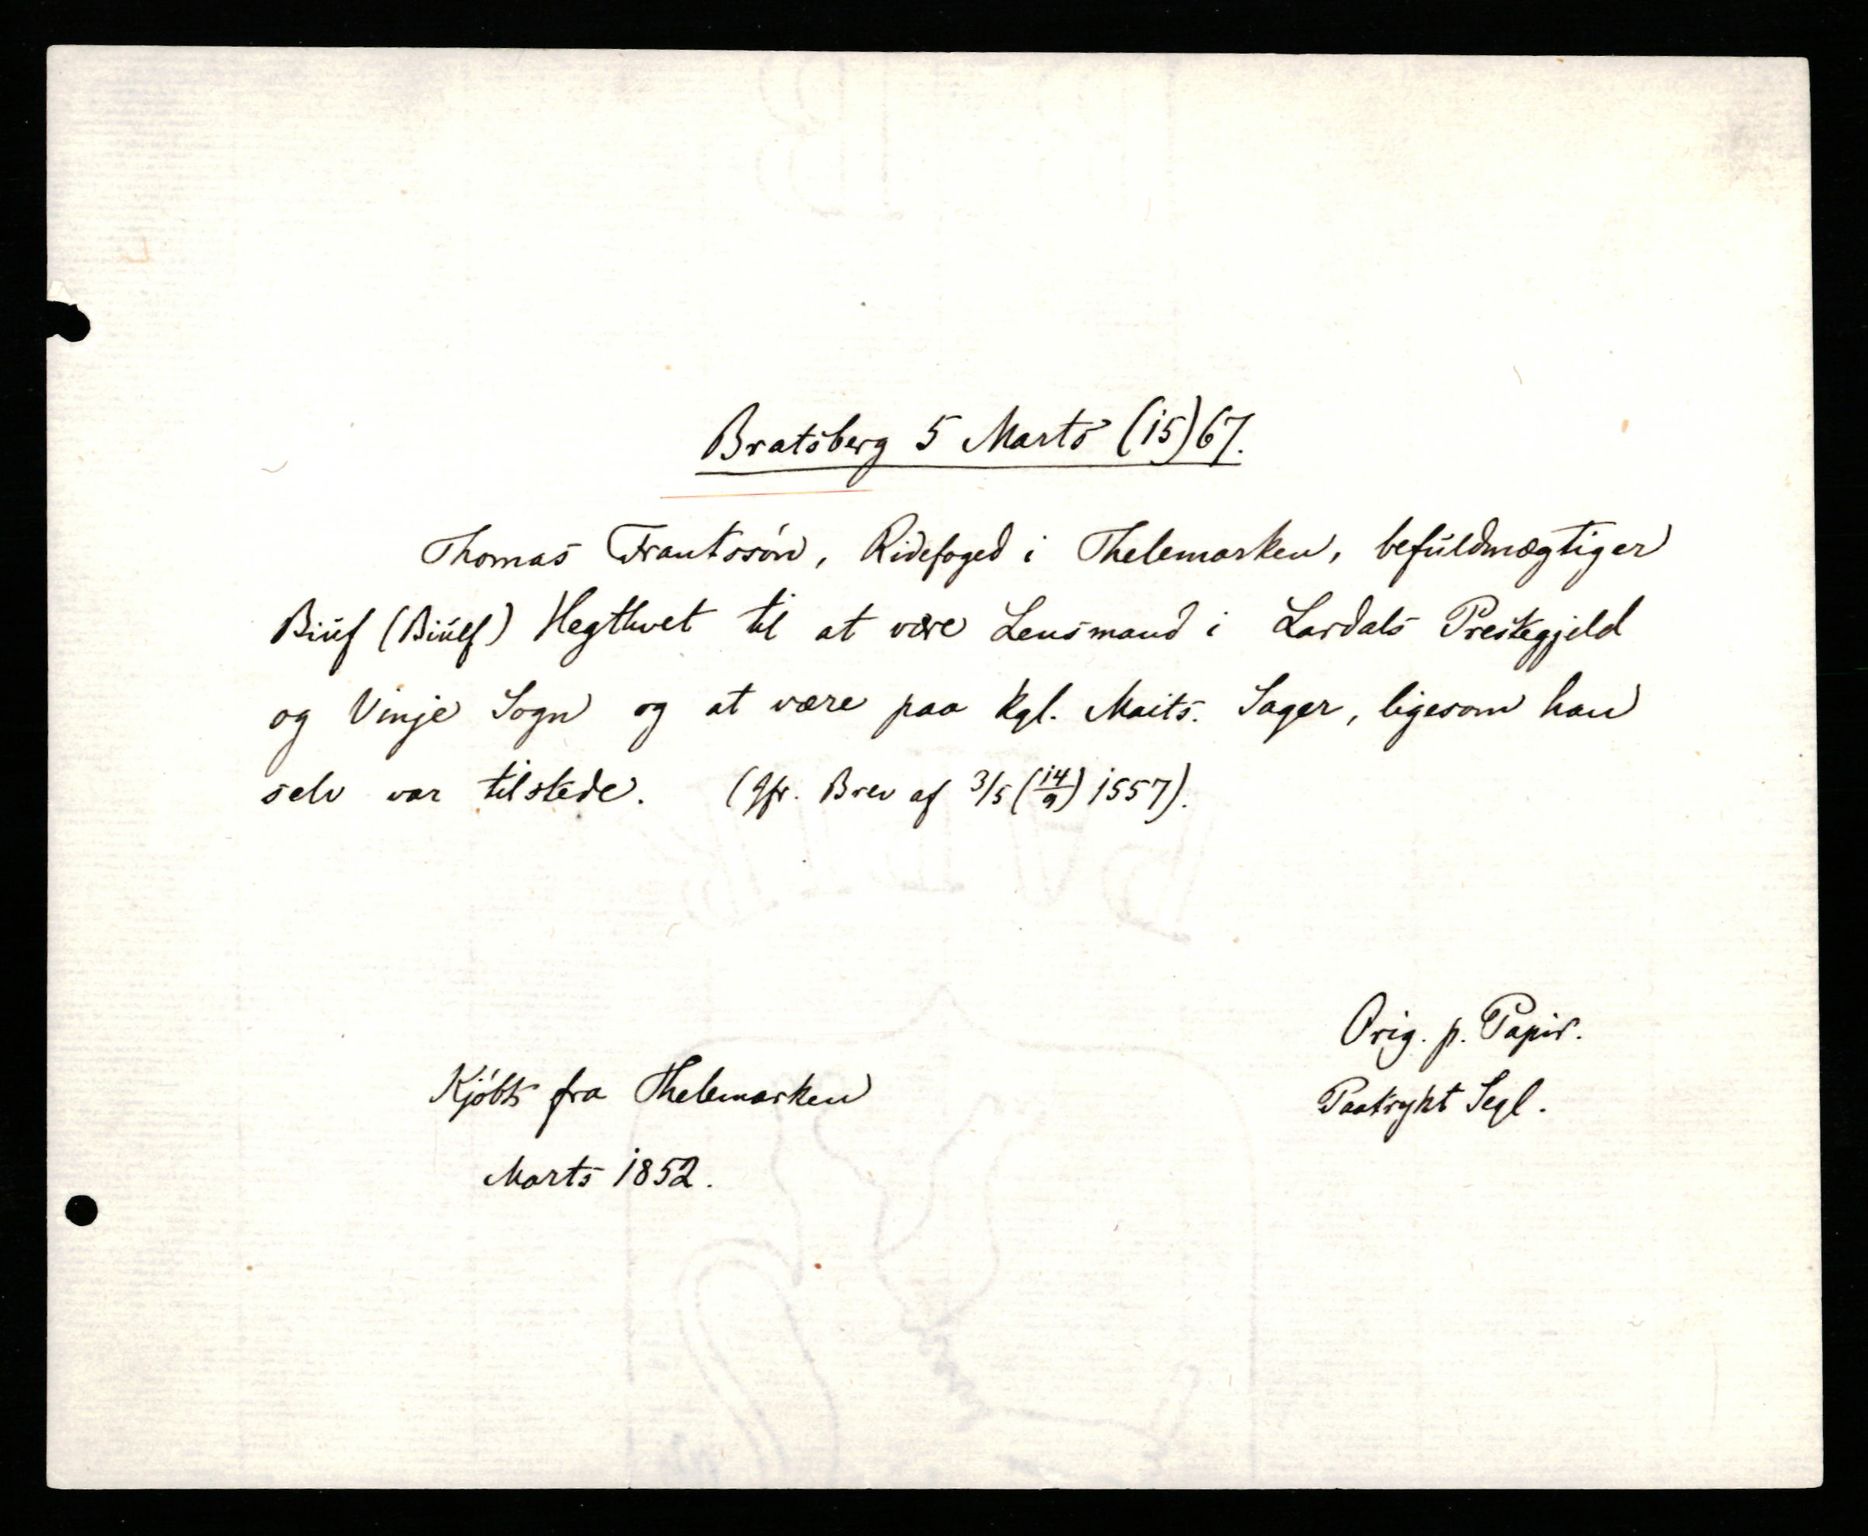 Bratsberg 5 Marts (15)67.
Thomas Frantssön, Ridefoged i Thelemarken, befuldmægtiger
Biuf (Biulf) Hegthvet til at være Lensmand i Lardals Prestegjeld
og Vinje Sogn og at være paa Kgl. Maits. Sager, ligesom han
selv var tilstede. (Jfr. Brev af 3/5 (14/9) 1557).
Orig. p. Papir.
Kjöbt fra Thelemarken
Paatrykt Segl.
Marts 1852.